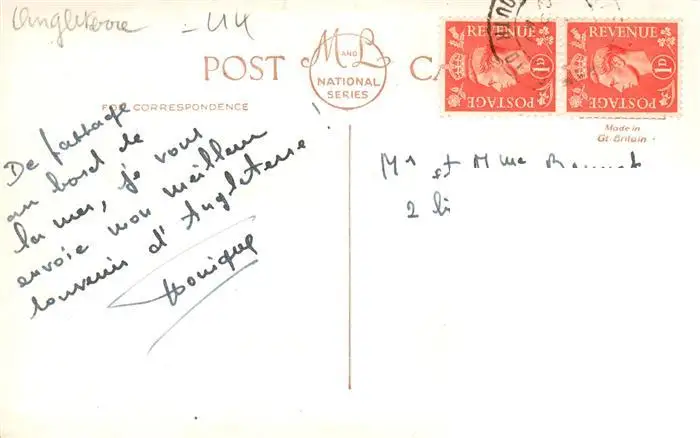 Angleterre - UK
POST CARD
M AND L
NATIONAL
SERIES
FOR CORRESPONDENCE
REVENUE
1D
POSTAGE
REVENUE
1D
POSTAGE
Made in
Gt. Britain
De passage
au bord de
la mer, je vous
envoie mon meilleur
souvenir d'Angleterre !
Monique
Mr et Mme
2